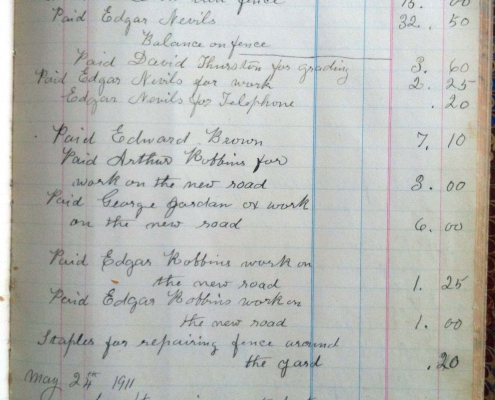 fence 15. 00
Paid Edgar Nevils 32. 50
Balance on fence
Paid David Thurston for grading 3. 60
Paid Edgar Nevils for work 2. 25
Edgar Nevils for Telephone . 20
Paid Edward Brown 7. 10
Paid Arthur Robbins for
work on the new road 3. 00
Paid George Jordan ox work
on the new road 6. 00
Paid Edgar Robbins work on
the new road 1. 25
Paid Edgar Robbins work on
the new road 1. 00
Staples for repairing fence around
the yard .20
May 24th 1911